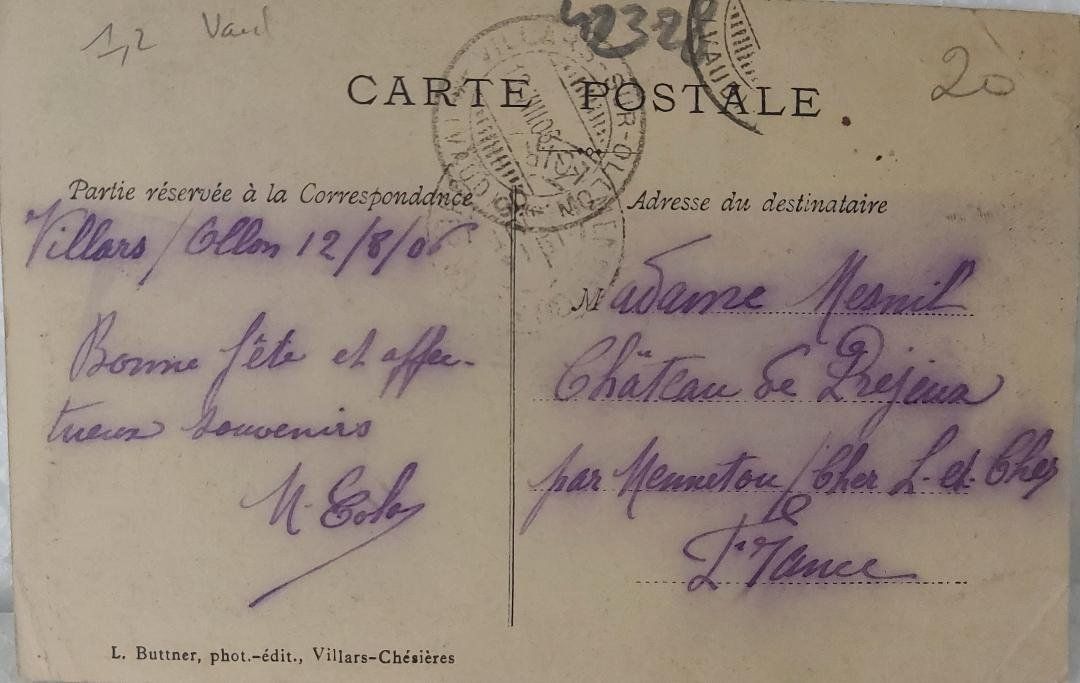 1,2 Vaud
42328
20
CARTE POSTALE
VILLARS-SUR-OLLON
(VAUD)
VAUD
Partie réservée à la Correspondance
Villars / Ollon 12/8/06
Bonne fête et affec-
tueux souvenirs
M
Adresse du destinataire
Madame Mesnil
Château de Préjeux
par Mennetou / Cher L-et-Cher
France
L. Buttner, phot.-édit., Villars-Chésières